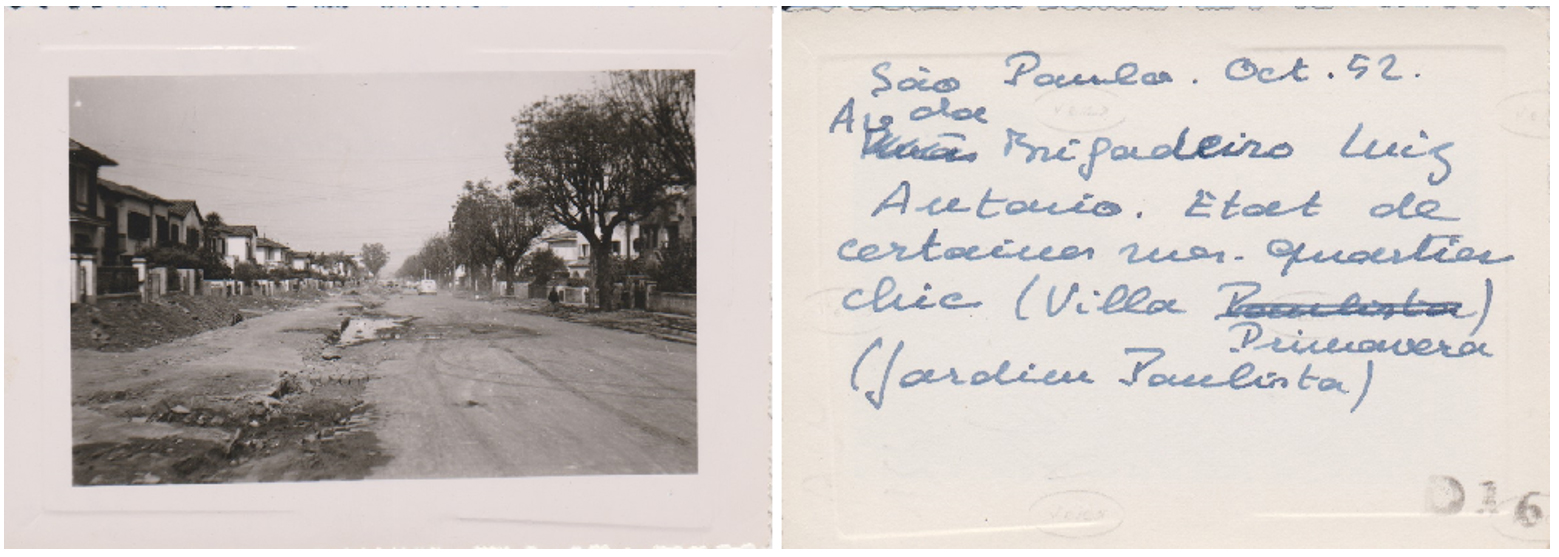 São Paulo. Oct. 52.
Av da
Brigadeiro Luiz
Antonio. Etat de
certaines rues. Quartier
chic (Villa Paulista)
Primavera
(Jardim Paulista)
D16